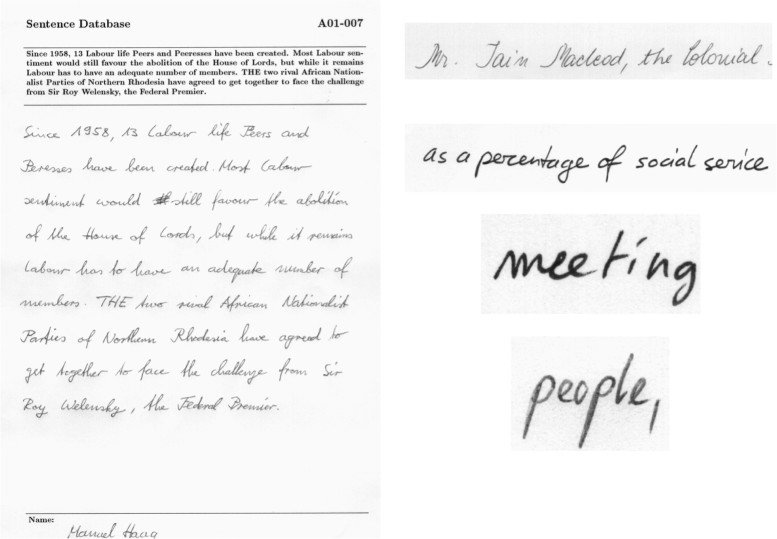 Sentence Database A01-007
Since 1958, 13 Labour life Peers and Peeresses have been created. Most Labour sen-
timent would still favour the abolition of the House of Lords, but while it remains
Labour has to have an adequate number of members. THE two rival African Nation-
alist Parties of Northern Rhodesia have agreed to get together to face the challenge
from Sir Roy Welensky, the Federal Premier.
Since 1958, 13 Labour life Peers and
Peresses have been created. Most Labour
sentiment would still favour the abolition
of the House of Lords, but while it remains
Labour has to have an adequate number of
members. THE two rival African Nationalist
Parties of Northern Rhodesia have agreed to
get together to face the challenge from Sir
Roy Welensky, the Federal Premier.
Name:
Manuel Haag
Mr. Iain Macleod, the Colonial
as a percentage of social service
meeting
people,